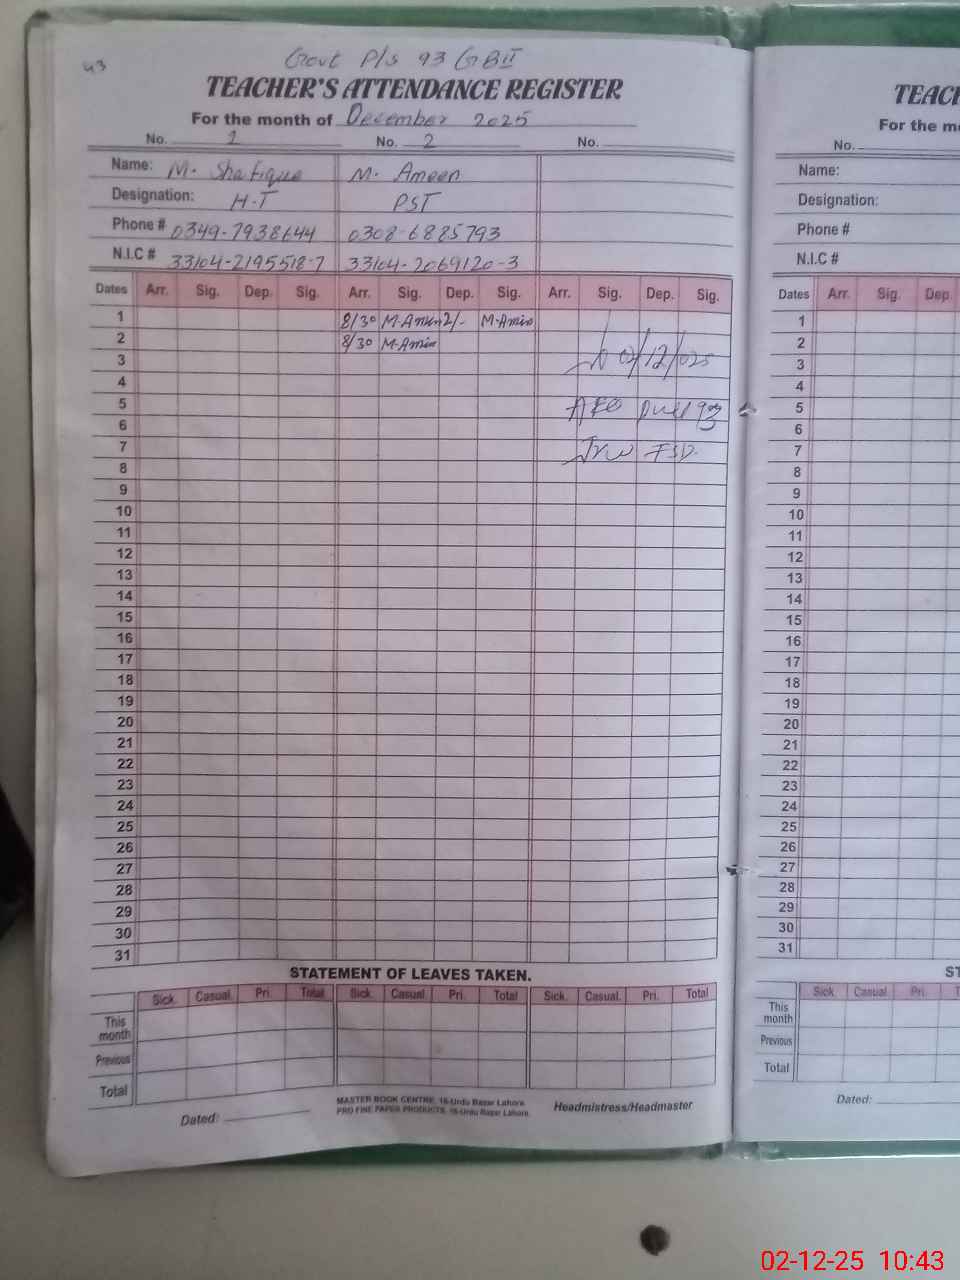 43
Govt P/S 93 GB II
TEACHER'S ATTENDANCE REGISTER
For the month of December 2025
No. 1 No. 2 No.
Name: M. Shafique M. Ameen
Designation: H-T PST
Phone # 0349-7938644 0308-6885793
N.I.C # 33104-2195518-7 33104-2069120-3
Dates Arr. Sig. Dep. Sig. Arr. Sig. Dep. Sig. Arr. Sig. Dep. Sig.
1 8/30 M-Amin 2/- M-Amin
2 8/30 M-Amin
3 02/12/025
4
5 AEO 93
6
7 FSD.
8
9
10
11
12
13
14
15
16
17
18
19
20
21
22
23
24
25
26
27
28
29
30
31
STATEMENT OF LEAVES TAKEN.
Sick. Casual. Pri. Total Sick. Casual. Pri. Total Sick. Casual. Pri. Total
This month
Previous
Total
MASTER BOOK CENTRE, 16-Urdu Bazar Lahore.
PRO FINE PAPER PRODUCTS, 16-Urdu Bazar Lahore.
Dated: Headmistress/Headmaster
TEACH
For the m
No.
Name:
Designation:
Phone #
N.I.C #
Dates Arr. Sig. Dep.
1
2
3
4
5
6
7
8
9
10
11
12
13
14
15
16
17
18
19
20
21
22
23
24
25
26
27
28
29
30
31
ST
Sick. Casual. Pri. T
This month
Previous
Total
Dated:
02-12-25 10:43